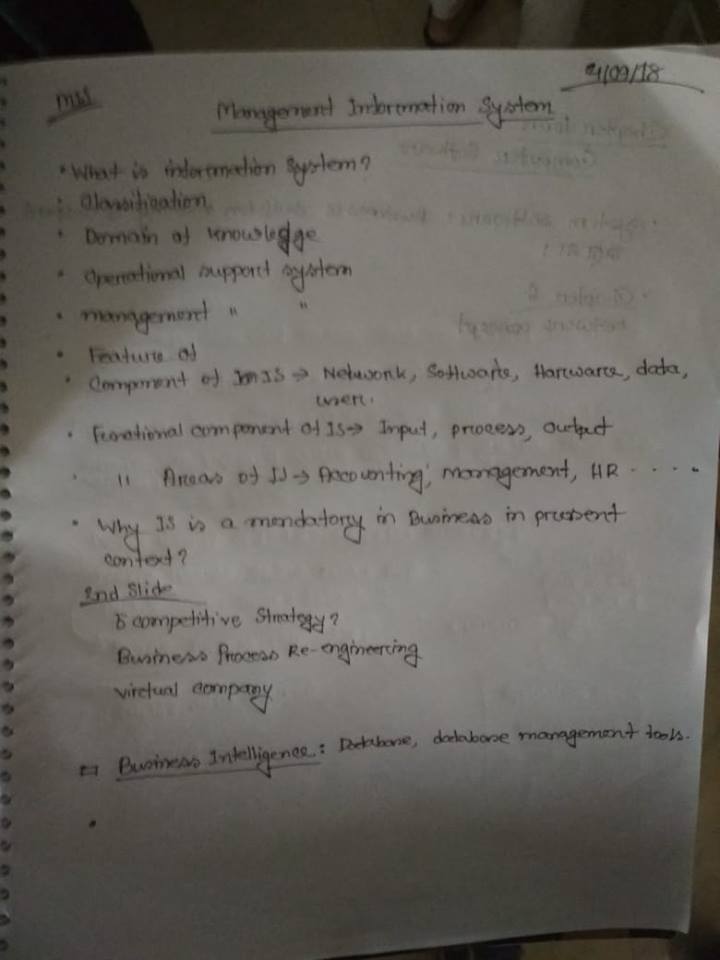 4/09/18
MIS
Management Information System
• What is information system?
• Classification
• Domain of knowledge
• Operational support system
• management " "
• Feature of
• Component of IMIS → Network, Software, Hardware, data,
user.
• Functional component of IS → Input, process, output
• " Areas of IS → Accounting, management, HR .....
• Why IS is a mendatory in Business in present
context?
2nd Slide
5 competitive Strategy?
Business Process Re-engineering
virtual company
⇒ Business Intelligence: Database, database management tools.
•